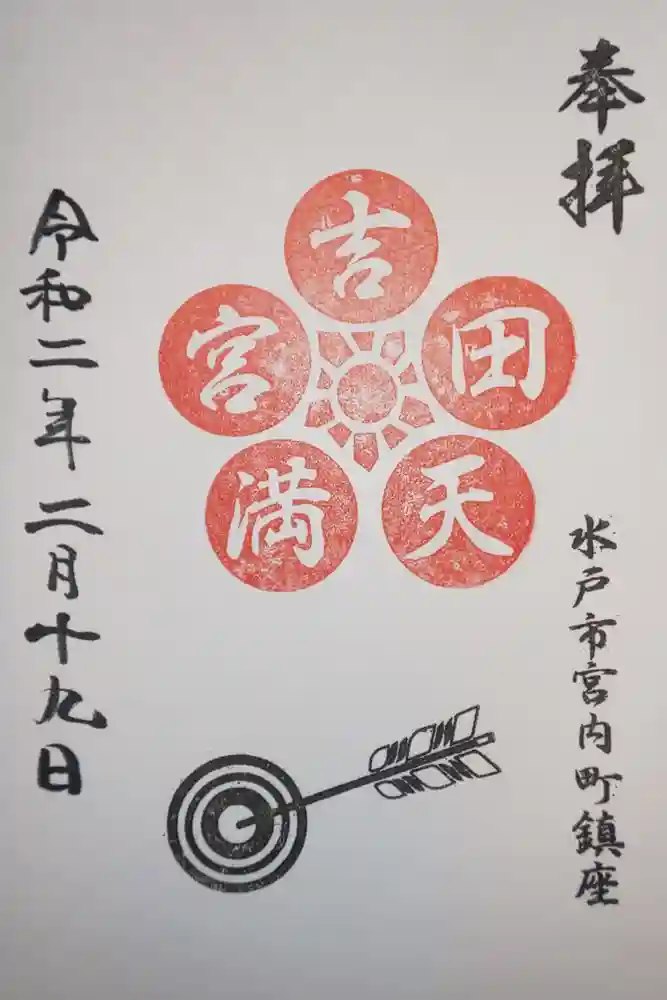 奉拝
吉田天満宮
水戸市宮内町鎮座
令和二年二月十九日